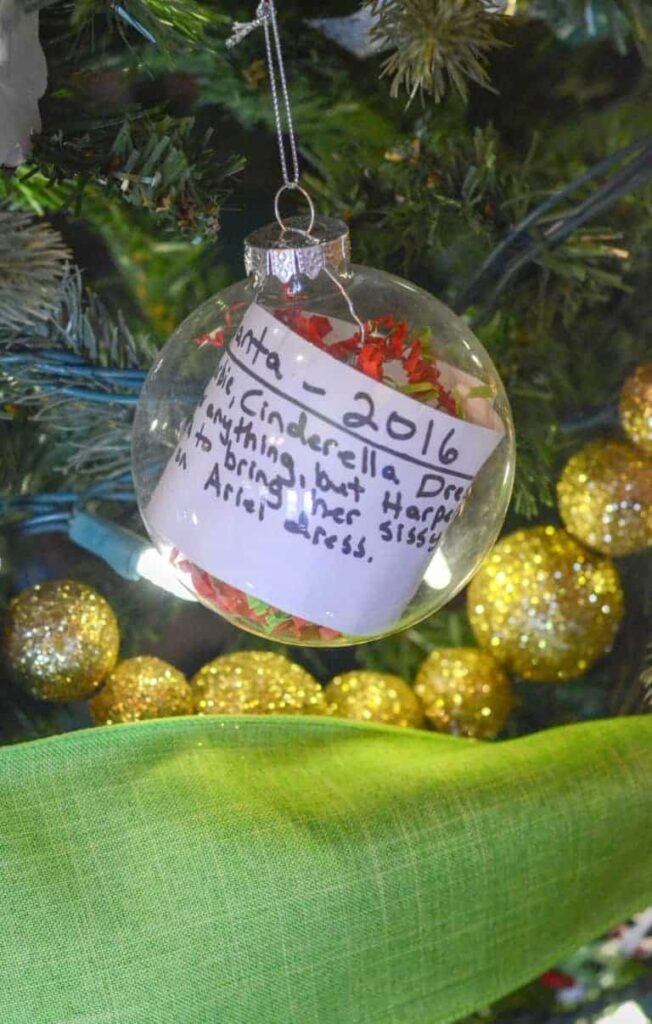 anta - 2016
bie, Cinderella Dre
anything, but Harpe
to bring her sissy
an Ariel dress.